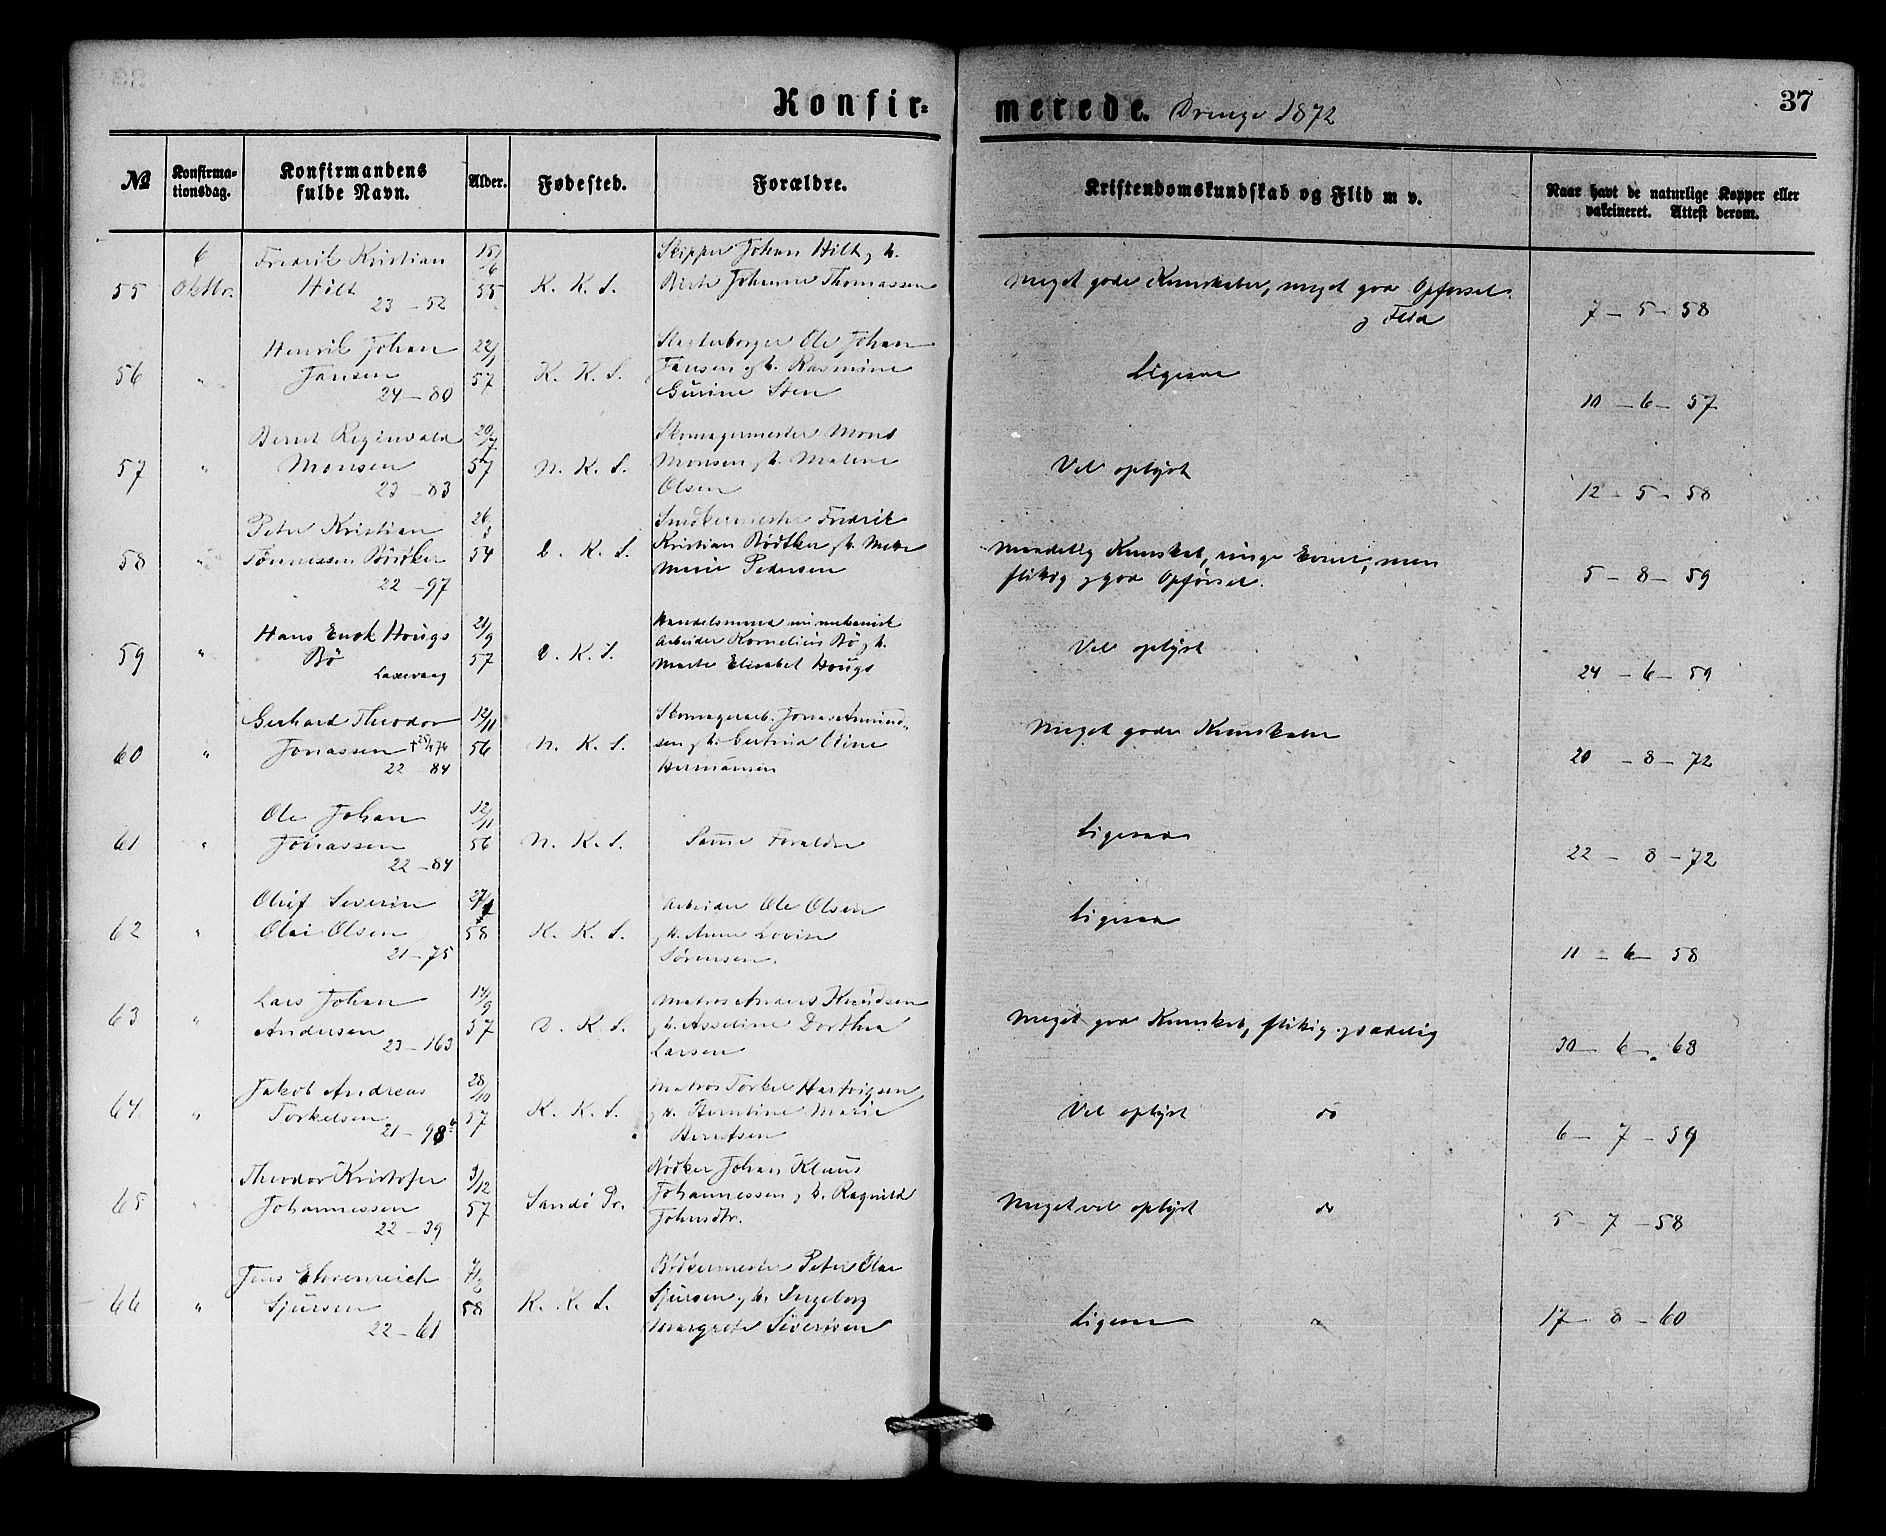 Konfir=
merede. Drenge 1872
37
№
Konfirma-
tionsdag.
Konfirmandens
fulde Navn.
Alder.
Fødested.
Forældre.
Kristendomskundskab og Flid m v.
Naar havt de naturlige Kopper eller
vakcineret. Attest derom.
6
Fredrik Kristian
Skipper Johan Hilt, h.
55 Oktbr. Hilt 55 K. K. S. Johanne Thomassen
23 - 52
Meget gode Kunskaber, meget god Opførsel
og Flid
7 - 5 - 58
Henrik Johan 22/1 Slagterborger Ole Johan
56 " Jansen 57 K. K. S. Jansen, h. Rasmine
24 - 80 Gurine Sten
Ligesaa
10 - 6 - 57
Bernt Reginvald 20/7 Skomagermester Mons
57 " Monsen 57 N. K. S. Monsen, h. Malene
23 - 83 Olsen
Vel oplyst
12 - 5 - 58
Peter Kristian Fredrik
58 " Tønnessen Bödtker 54 D. K. S. Kristian Bödtker, h. Mette
22 - 97 Marie Pedersen
Maadelig Kunskab, ringe Evner, men
flittig, god Opførsel.
5 - 8 - 59
Hans Enok Hougs 21/9 Handelsmand nu mekanisk
59 " Bö 57 D. K. S. Arbeider Kornelius Bö, h.
Laxevaag Marte Elisabet Hougs
Vel oplyst
24 - 6 - 59
Gerhard Theodor 12/11 Skomagerarb. Jonas Amund-
60 " Jonassen 56 N. K. S. sen, h. Gertrud Oline
22 - 84 Hermansen
Meget gode Kunskaber
20 - 8 - 72
Ole Johan 12/11
61 " Jonassen 56 N. K. S. Same Foraldre
22 - 84
Ligesaa
22 - 8 - 72
Oluf Severin Arbeider Ole Olsen
62 " Olai Olsen 58 K. K. S. , h. Anne Lovise
21 - 75 Sörensen.
Ligesaa
11 - 6 - 58
Lars Johan 14/9 Matros Anders Knudsen
63 " Andersen 57 D. K. S. , h. Asseline Dorthea
23 - 163 Larsen
Meget god Kunskab, flittig, sædelig
30 - 6 - 68
Jakob Andreas 28/10 Matros Torkel Hartvigsen
64. " Torkelsen 57 K. K. S. , h. Berntine Marie
21 - 98 Berntsen
Vel oplyst do
6 - 7 - 59
Theodor Kristofer 9/12 Bödker Johan Klaus
65 " Johannessen 57 Sandö Pr. Johannessen, h. Ragnild
22 - 39 Johnsdtr.
Meget vel oplyst do
5 - 7 - 58
Jens Ehrenreich Bödkermester Peter Olai
66 " Sjursen 58 K. K. S. Sjursen, h. Ingeborg
22 - 61 Margrete Sivertsen
Ligesaa "
17 - 8 - 60